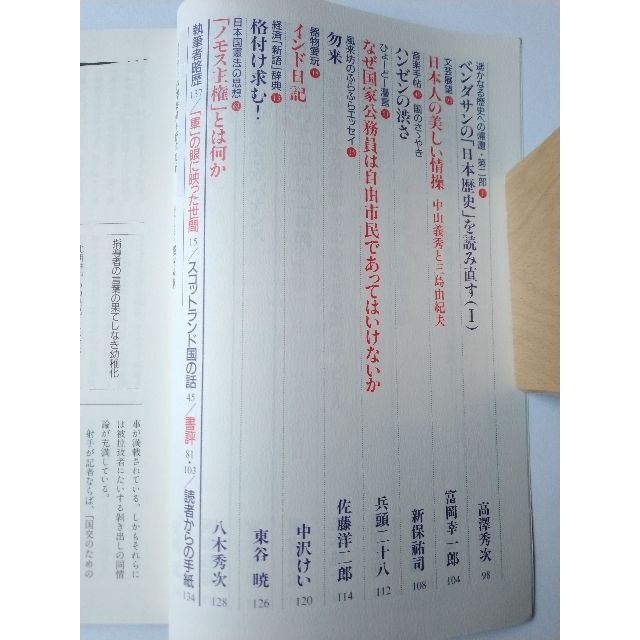 遙かなる歴史への帰還・第二部
ベンダサンの「日本歴史」を読み直す(Ⅰ)
高澤秀次
98
文芸展望
日本人の美しい情操 中山義秀と三島由紀夫
富岡幸一郎
104
音楽手帖 風のさゝやき
ハンゼンの渋さ
新保祐司
108
ひょーどー漫言
なぜ国家公務員は自由市民であってはいけないか
兵頭二十八
112
風来坊のふらふらエッセイ
勿来
佐藤洋二郎
114
器物愛玩
インド日記
中沢けい
120
経済「新語」辞典
格付け求む!
東谷 暁
126
日本国憲法の思想
「ノモス主権」とは何か
八木秀次
128
執筆者略歴 137/「軍」の眼に映った世間 15/スコットランド国の話 45/書評 81・103/読者からの手紙 134
指導者の言葉の果てしなき幼稚化
事が満載されている。しかもそれらに
は被拉致者にたいする剥き出しの同情
論が充満している。
射手が記者ならば、「国交のための